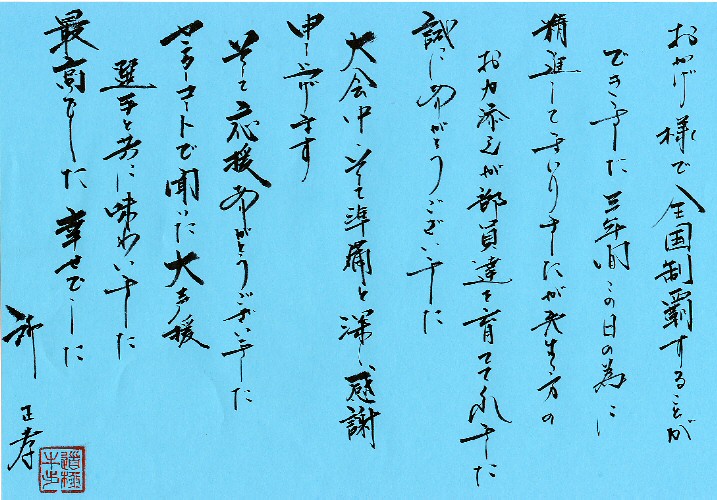 おかげ様で全国制覇することが
できました 三年間この日の為に
精進してまいりましたが先生方の
お力添えが部員達を育ててくれました
誠にありがとうございました
大会中、そして準備と深い感謝
申し上げます
そして応援ありがとうございました
センターコートで聞いた大声援
選手と共に味わいました
最高でした 幸せでした
正孝